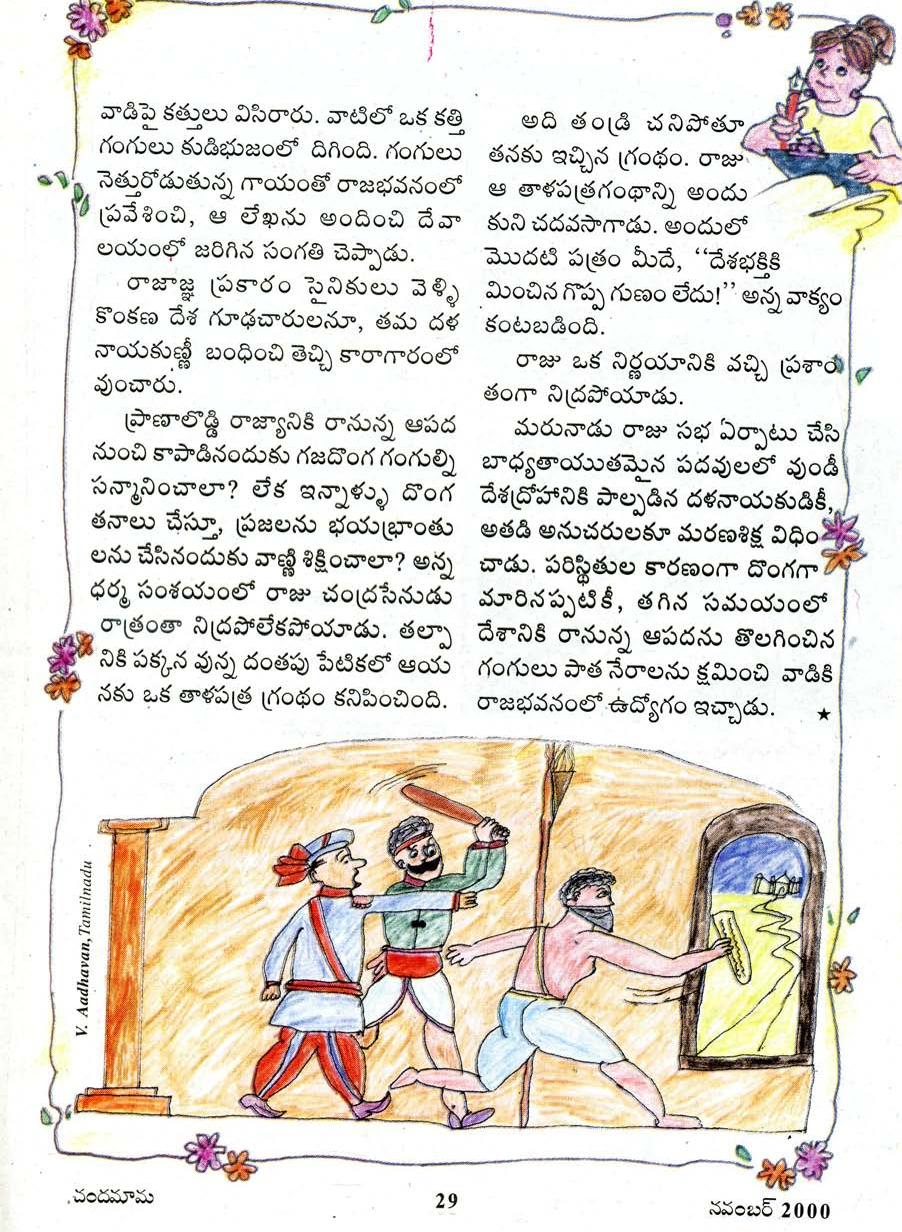 వాడిపై కత్తులు విసిరారు. వాటిలో ఒక కత్తి
గంగులు కుడిభుజంలో దిగింది. గంగులు
నెత్తురోడుతున్న గాయంతో రాజభవనంలో
ప్రవేశించి, ఆ లేఖను అందించి దేవా
లయంలో జరిగిన సంగతి చెప్పాడు.
రాజాజ్ఞ ప్రకారం సైనికులు వెళ్ళి
కొంకణ దేశ గూఢచారులనూ, తమ దళ
నాయకుణ్ణీ బంధించి తెచ్చి కారాగారంలో
వుంచారు.
ప్రాణాలొడ్డి రాజ్యానికి రానున్న ఆపద
నుంచి కాపాడినందుకు గజదొంగ గంగుల్ని
సన్మానించాలా? లేక ఇన్నాళ్ళు దొంగ
తనాలు చేస్తూ, ప్రజలను భయభ్రాంతు
లను చేసినందుకు వాణ్ణి శిక్షించాలా? అన్న
ధర్మ సంశయంలో రాజు చంద్రసేనుడు
రాత్రంతా నిద్రపోలేకపోయాడు. తల్పా
నికి పక్కన వున్న దంతపు పేటికలో ఆయ
నకు ఒక తాళపత్ర గ్రంథం కనిపించింది.
అది తండ్రి చనిపోతూ
తనకు ఇచ్చిన గ్రంథం. రాజు
ఆ తాళపత్రగంథాన్ని అందు
కుని చదవసాగాడు. అందులో
మొదటి పత్రం మీదే, ‘‘దేశభక్తికి
మించిన గొప్ప గుణం లేదు!’’ అన్న వాక్యం
కంటబడింది.
రాజు ఒక నిర్ణయానికి వచ్చి ప్రశాం
తంగా నిద్రపోయాడు.
మరునాడు రాజు సభ ఏర్పాటు చేసి
బాధ్యతాయుతమైన పదవులలో వుండీ
దేశద్రోహానికి పాల్పడిన దళనాయకుడికీ,
అతడి అనుచరులకూ మరణశిక్ష విధిం
చాడు. పరిస్థితుల కారణంగా దొంగగా
మారినప్పటికీ, తగిన సమయంలో
దేశానికి రానున్న ఆపదను తొలగించిన
గంగులు పాత నేరాలను క్షమించి వాడికి
రాజభవనంలో ఉద్యోగం ఇచ్చాడు. ★
V. Aadhavan, Tamilnadu
చందమామ
29
నవంబర్ 2000